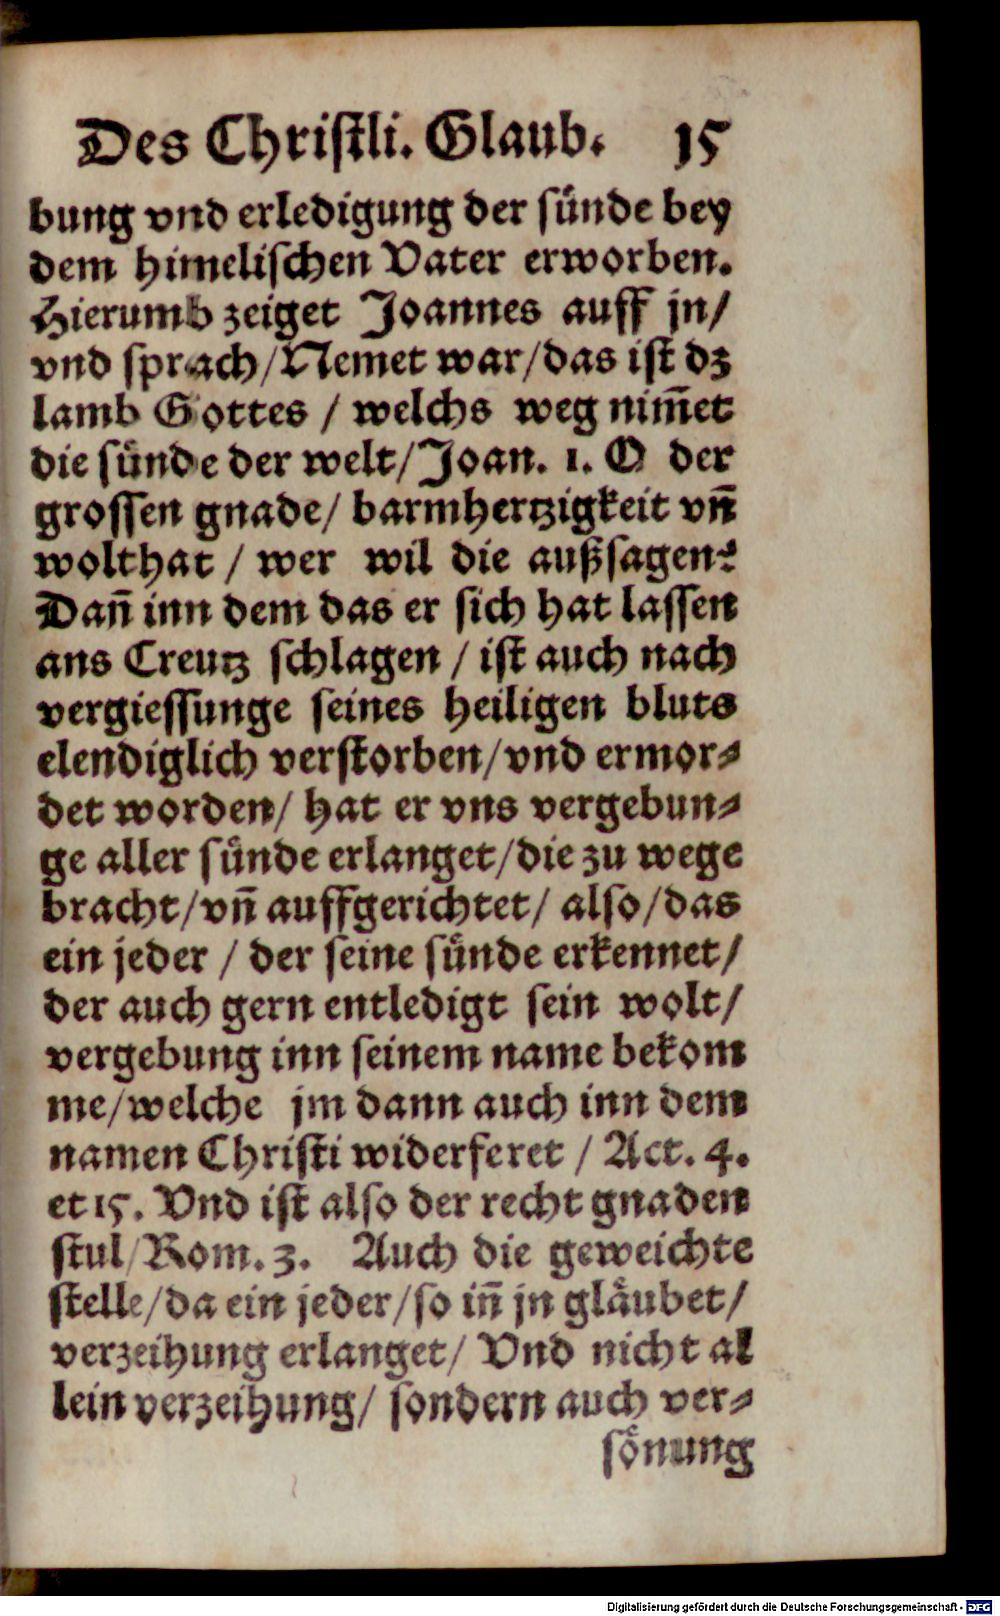 Des Christli. Glaub. 15
bung vnd erledigung der sünde bey
dem himelischen Vater erworben.
Hierumb zeiget Joannes auff jn/
vnd sprach/Nemet war/das ist dz
lamb Gottes / welchs weg nim̄et
die sünde der welt/Joan. 1. O der
grossen gnade/ barmhertzigkeit vn̄
wolthat / wer wil die außsagen?
Dan̄ inn dem das er sich hat lassen
ans Creutz schlagen / ist auch nach
vergiessunge seines heiligen bluts
elendiglich verstorben/vnd ermor⸗
det worden/ hat er vns vergebun⸗
ge aller sünde erlanget/die zu wege
bracht/vn̄ auffgerichtet/ also/das
ein jeder / der seine sünde erkennet/
der auch gern entledigt sein wolt/
vergebung inn seinem name bekom
me/welche jm dann auch inn dem
namen Christi widerferet / Act. 4.
et 15. Vnd ist also der recht gnaden
stul/Rom. 3. Auch die geweichte
stelle/da ein jeder/so in̄ jn gläubet/
verzeihung erlanget/ Vnd nicht al
lein verzeihung/ sondern auch ver⸗
sönung
Digitalisierung gefördert durch die Deutsche Forschungsgemeinschaft - DFG